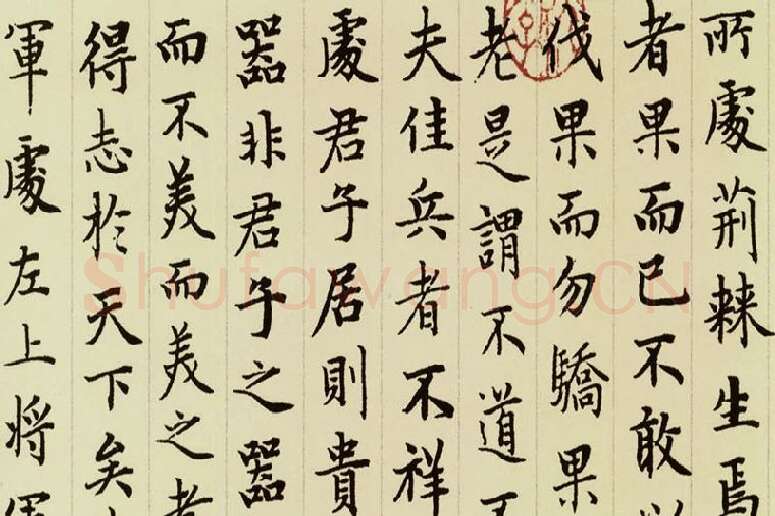 所處荆棘生焉
者果而已不敢以
伐果而勿驕果
老是謂不道不
夫佳兵者不祥
處君子居則貴
器非君子之器
而不美而美之者
得志於天下矣
軍處左上将軍
Shufawang.CN